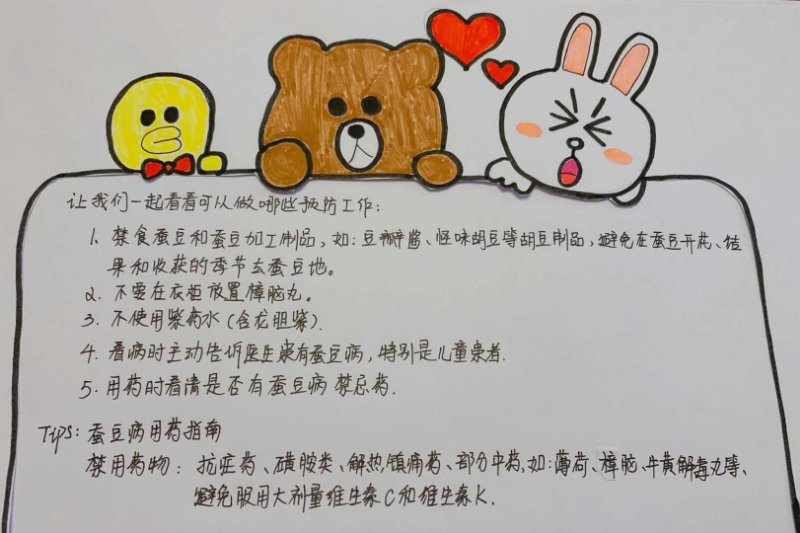 让我们一起看看可以做哪些预防工作:
1. 禁食蚕豆和蚕豆加工制品,如:豆瓣酱、怪味胡豆等胡豆制品,避免在蚕豆开花、结
果和收获的季节去蚕豆地。
2. 不要在衣柜放置樟脑丸。
3. 不使用紫药水(含龙胆紫).
4. 看病时主动告诉医生患有蚕豆病,特别是儿童患者.
5. 用药时看清是否有蚕豆病禁忌药.
Tips: 蚕豆病用药指南
禁用药物: 抗疟药、磺胺类、解热镇痛药、部分中药,如:薄荷、樟脑、牛黄解毒丸等、
避免服用大剂量维生素C和维生素K.